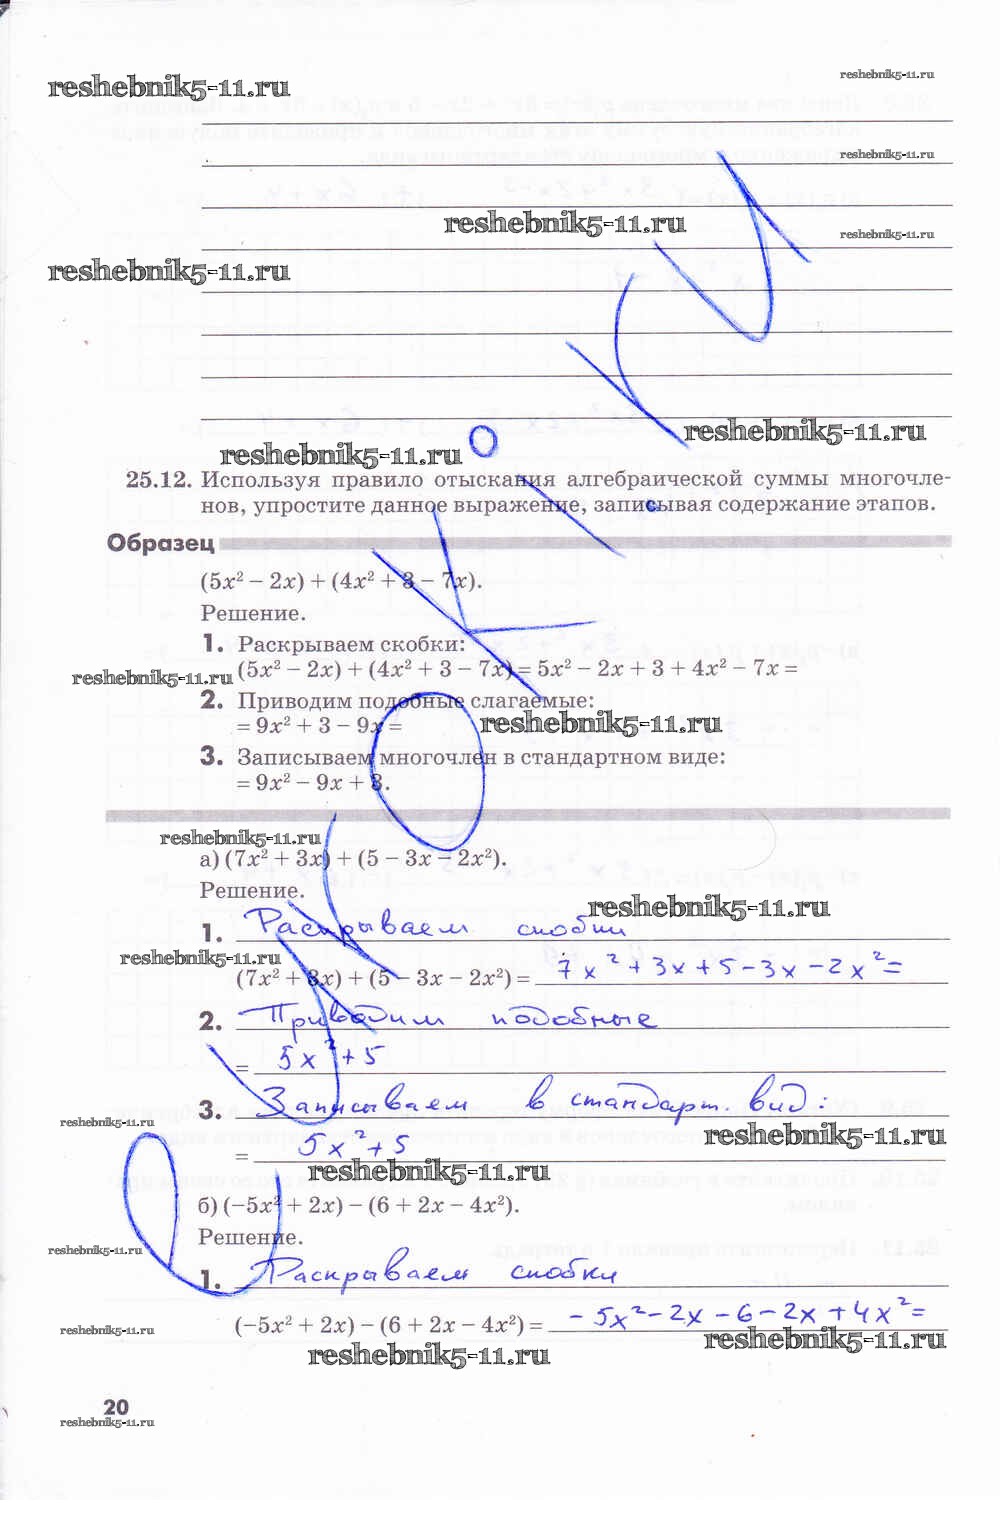 reshebnik5-11.ru
reshebnik5-11.ru
reshebnik5-11.ru
reshebnik5-11.ru
reshebnik5-11.ru
reshebnik5-11.ru
reshebnik5-11.ru
reshebnik5-11.ru
25.12. Используя правило отыскания алгебраической суммы многочле-
нов, упростите данное выражение, записывая содержание этапов.
Образец
(5x² – 2x) + (4x² + 3 – 7x).
Решение.
1. Раскрываем скобки:
(5x² – 2x) + (4x² + 3 – 7x) = 5x² – 2x + 3 + 4x² – 7x =
reshebnik5-11.ru
2. Приводим подобные слагаемые:
= 9x² + 3 – 9x =
reshebnik5-11.ru
3. Записываем многочлен в стандартном виде:
= 9x² – 9x + 3.
reshebnik5-11.ru
а) (7x² + 3x) + (5 – 3x – 2x²).
Решение.
reshebnik5-11.ru
1. Раскрываем скобки
reshebnik5-11.ru
(7x² + 3x) + (5 – 3x – 2x²) = 7x² + 3x + 5 – 3x – 2x² =
2. Приводим подобные
= 5x² + 5
3. Записываем в стандарт. вид:
reshebnik5-11.ru
reshebnik5-11.ru
= 5x² + 5
reshebnik5-11.ru
б) (–5x² + 2x) – (6 + 2x – 4x²).
Решение.
reshebnik5-11.ru
1. Раскрываем скобки
(–5x² + 2x) – (6 + 2x – 4x²) = – 5x² – 2x – 6 – 2x + 4x² =
reshebnik5-11.ru
reshebnik5-11.ru
reshebnik5-11.ru
20
reshebnik5-11.ru